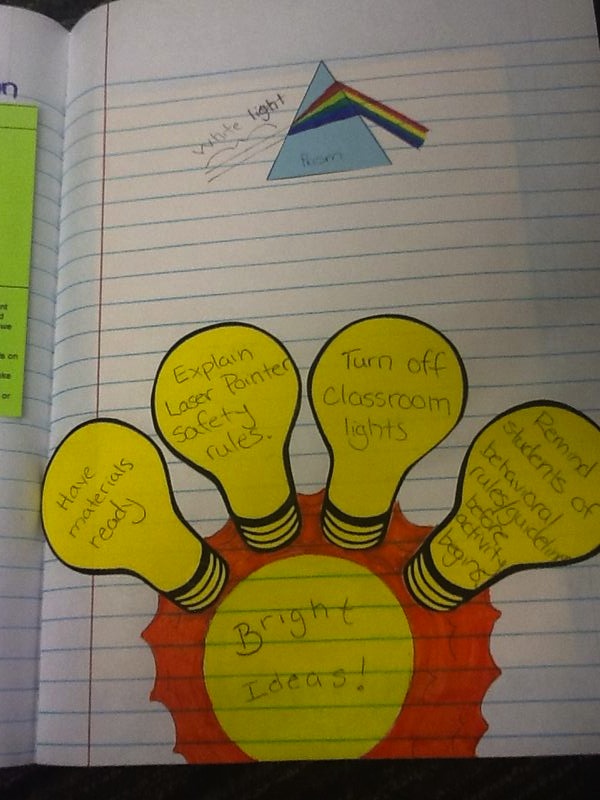 on
white light
Prism
Explain
Laser Pointer
safety
rules.
Turn off
classroom
lights
Have
materials
ready
Remind
students of
behavioral
rules/guidelines
before
activity
begins
Bright
Ideas!